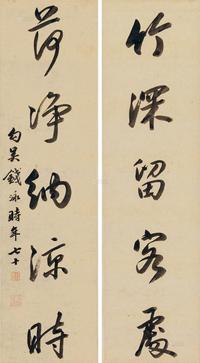 竹深留客處
荷淨納涼時
句吳錢泳時年七十